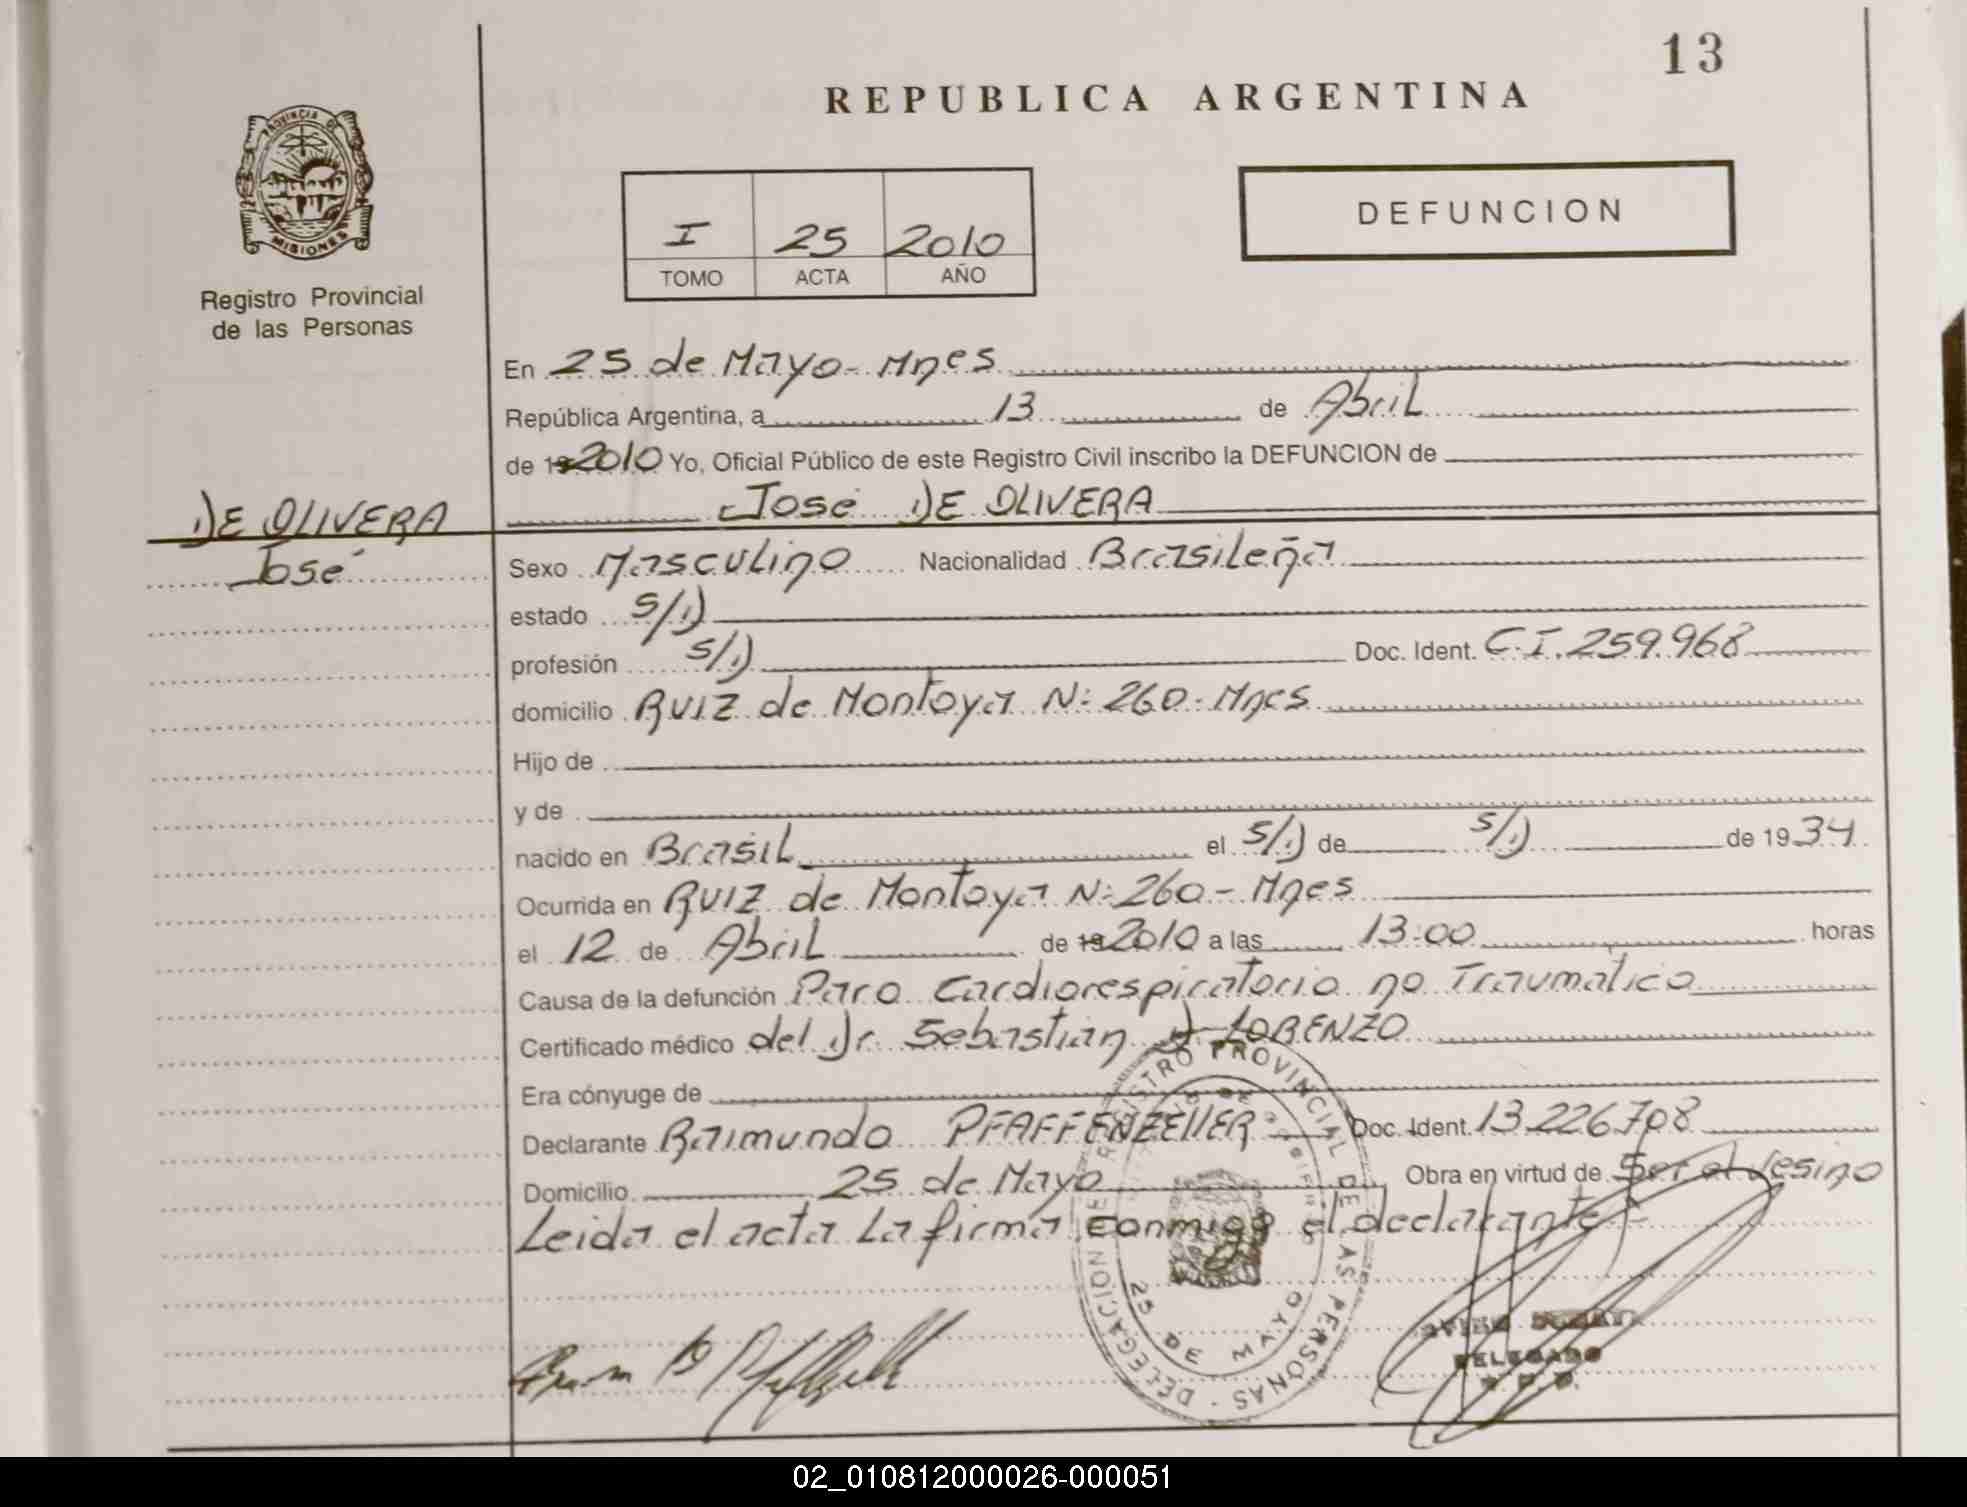 13
REPUBLICA ARGENTINA
PROVINCIA DE
MISIONES
Registro Provincial
de las Personas
I 25 2010
TOMO ACTA AÑO
DEFUNCION
En 25 de Mayo - Mnes
República Argentina, a 13 de Abril
de 19 2010 Yo, Oficial Público de este Registro Civil inscribo la DEFUNCION de
DE OLIVERA
José
José DE OLIVERA
Sexo Masculino Nacionalidad Brasileña
estado S/D
profesión S/D Doc. Ident. C.I. 259.968
domicilio RUIZ de Montoya Nº 260 - Mnes
Hijo de
y de
nacido en Brasil el S/D de S/D de 1934
Ocurrida en RUIZ de Montoya Nº 260 - Mnes
el 12 de Abril de 19 2010 a las 13:00 horas
Causa de la defunción Paro Cardiorespiratorio no Traumatico
Certificado médico del Dr. Sebastian LORENZO
Era cónyuge de
Declarante Raimundo PFAFFENZELLER Doc. Ident. 13.226.708
Domicilio 25 de Mayo Obra en virtud de Ser el Vesino
Leida el acta La firma conmigo el declarante
DELEGACION REGISTRO PROVINCIAL DE LAS PERSONAS
25 DE MAYO
DELEGADO
02_010812000026-000051